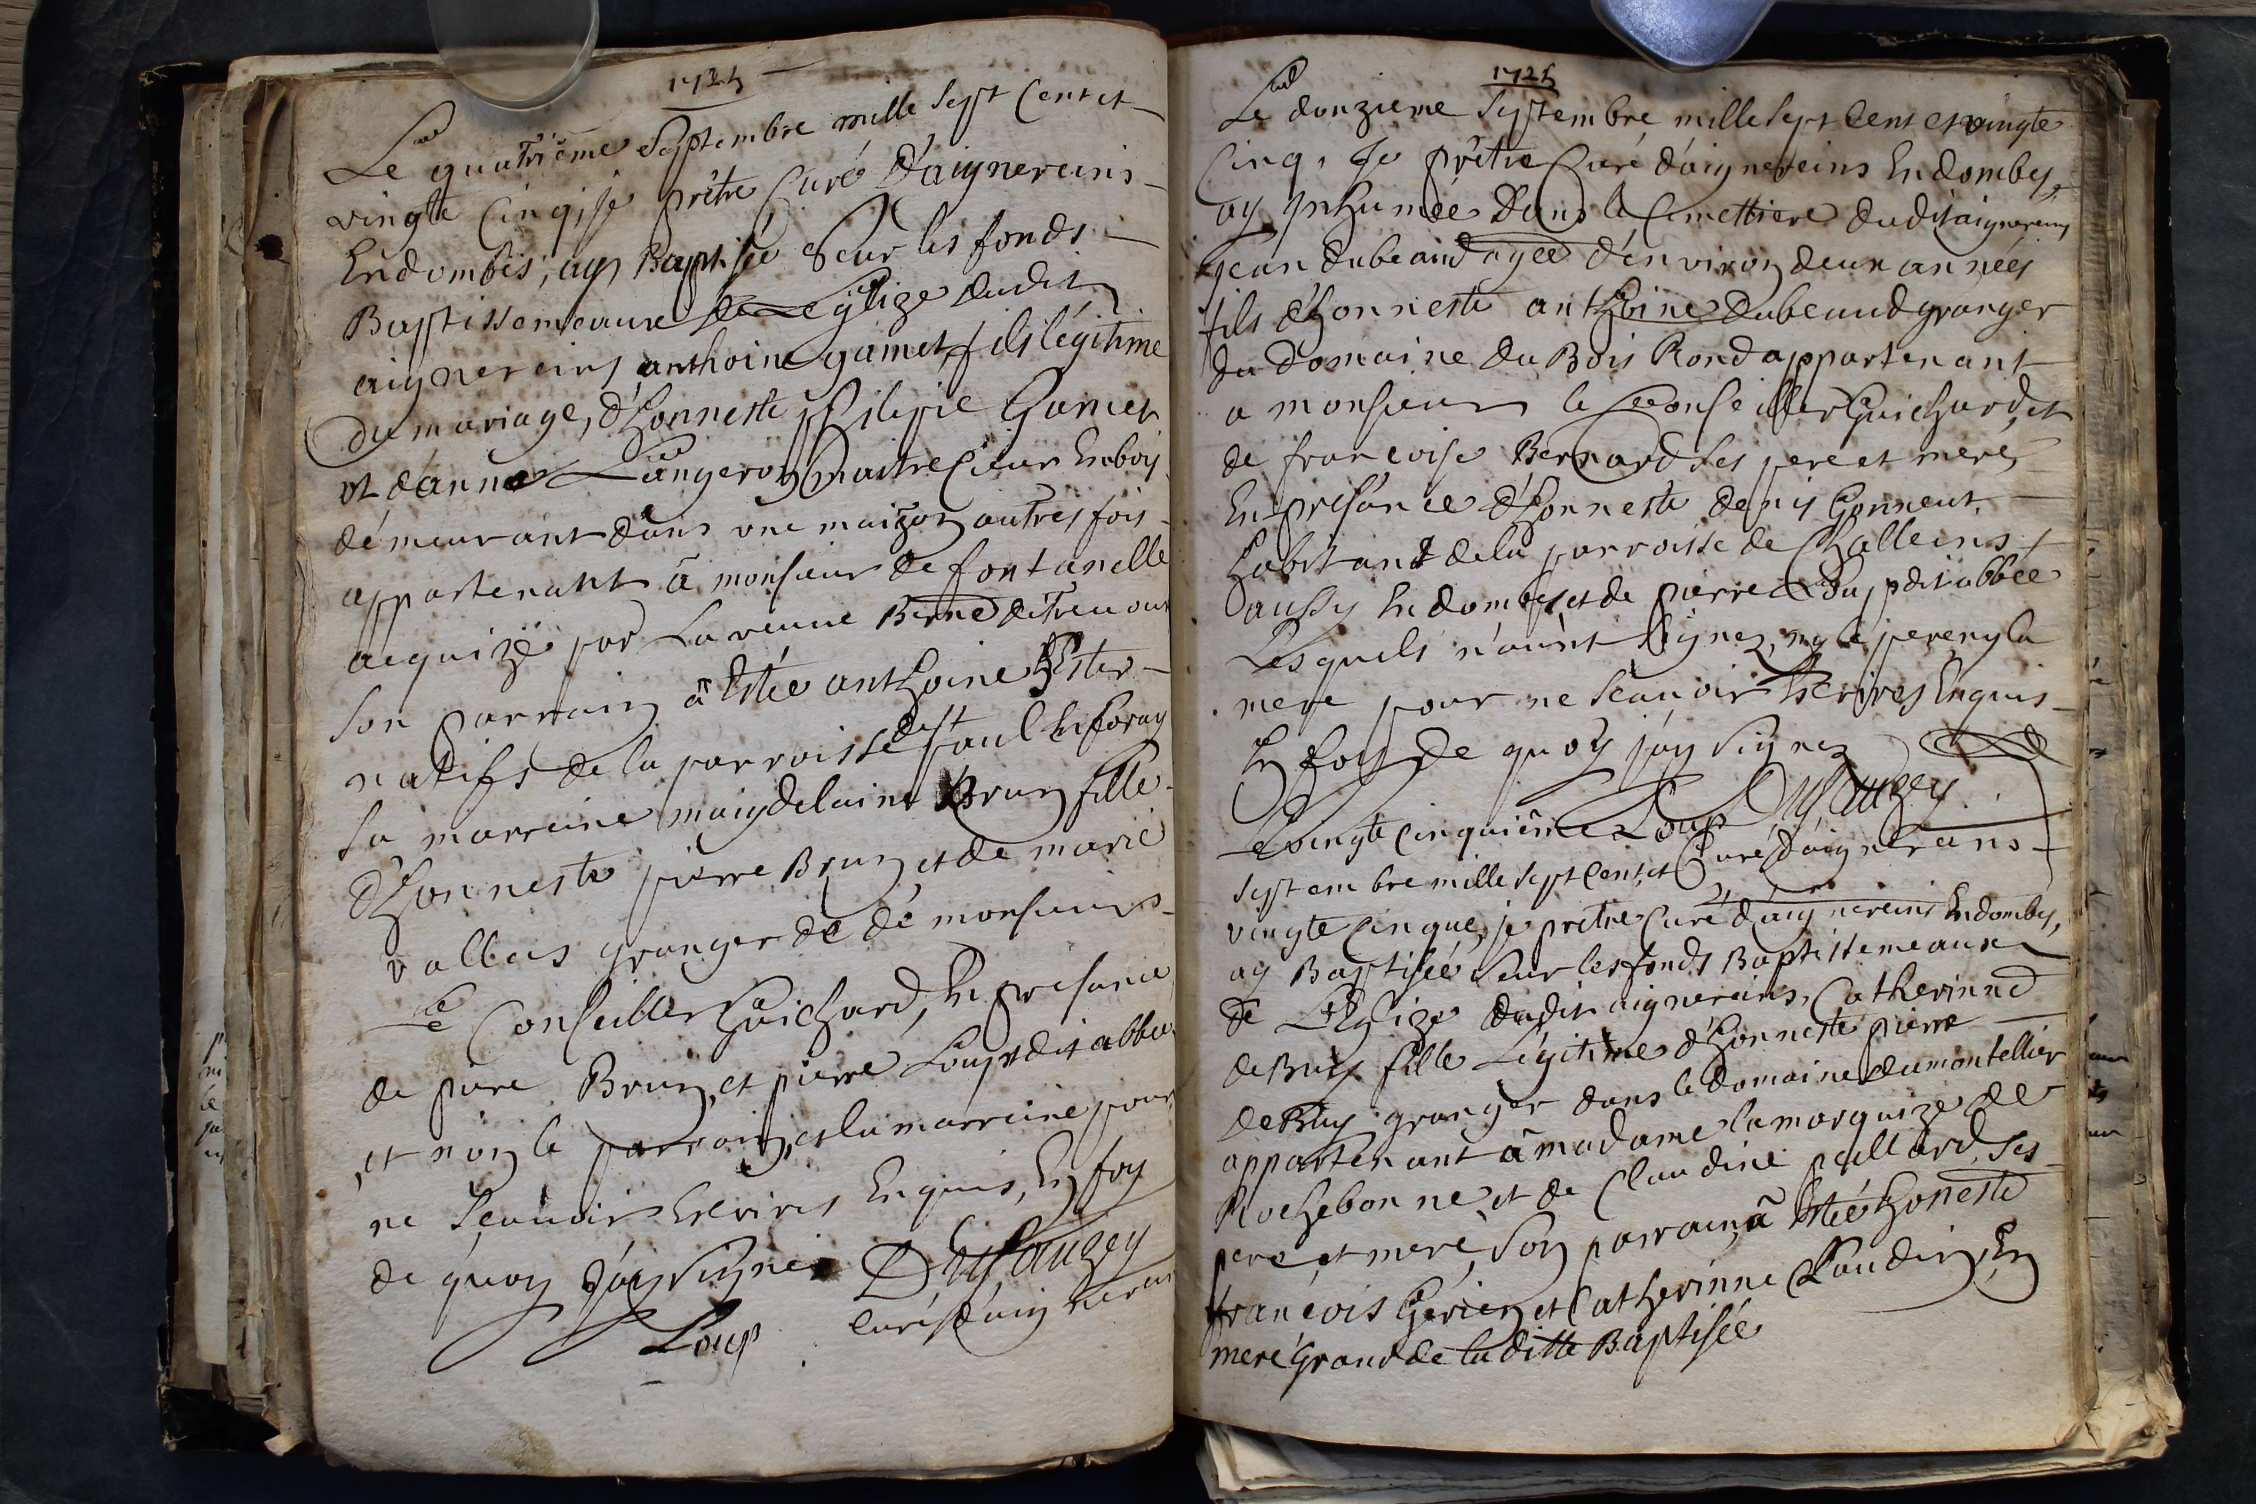 1725
Le quatriême Septembre mille Sept Cent et
vingte Cinq, je prêtre Curé d'aignereins
En dombes, ay Baptisée Seur les fonds
Baptissemeaux de Leglize dudit
aignereins anthoine gamet fils légitime
du mariage, d'honneste philipie Gamet
et d'anne Langeron maitre Cieur En bois
démeurant dans une maizon autres fois
appartenant â monsieur de fontanelle
acquize par La veuve Berne de Trevoux
Son parrain â Estée anthoine
natifs de la parroisse de St paul En foray
Sa marreine maigdelaine Brun fille
d'honneste pierre Brun et de marie
vallas granger de dé monsieurs
Le Conseiller Guichard, En presance
de piere Brun, et pierre Loup dit abbée
et non le parrain, et la marreine pour
ne Sçauoir Escrires Enquis, En foy
de quoy j'ay Signé Desauzey
Loup curé d'aignereins
1725
Le douzieme Septembre mille Sept Cent et vingte
Cinq, Je prêtre Curé d'aignereins En dombes,
ay Inhumée Dans le Cimettiere dudit aignereins
jean dubeaud agée d'environ deux années
fils d'honneste anthoine dubeaud granger
du domaine du Bois Rond appartenant
a monsieur le Conseiller Guichard, et
de francoise Bernard Ses pere et mere,
En presance d'honneste denis Gonneut
habitant de la parroisse de Challeins
aussy En dombes, et de pierre Loup dit abbée
Lesquels n'aûnt Signez, ny le pere ny la
mere pour ne Sçauoir Escrires Enquis
En foy de quoy j'ay Signez
Loup Desauzey
Curé d'aignerans
Le vingte Cinquiême
Septembre mille Sept Cent et
vingte Cinque, je prêtre Curé d'aignereins En dombes,
ay Baptisée Seur les fonds Baptissemeaux
de L'Eglize dudit aignereins, Catherinne
de Bus fille Légitime d'honneste pierre
de Bus granger dans le domaine du montellier
appartenant â madame la marquize de
Rochebonne et de Claudine paillard, Ses
pere et mere, Son parrain â Estée honeste
francois Gerien et Catherinne Claudin, En
mere grand de laditte Baptisée